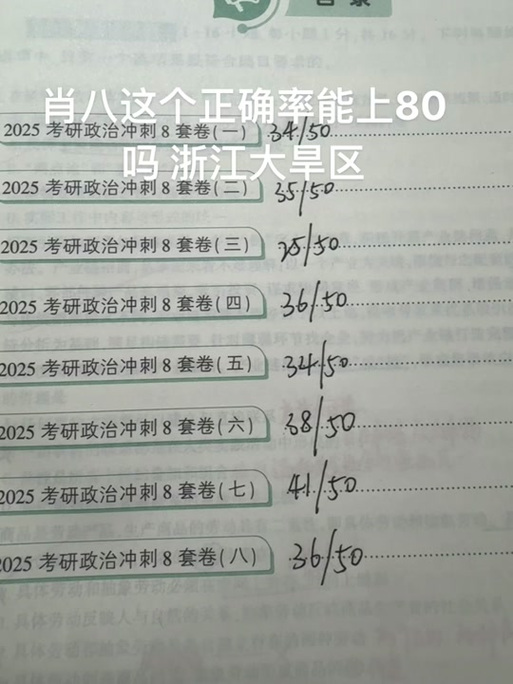 目录
肖八这个正确率能上80
吗 浙江大旱区
2025 考研政治冲刺 8 套卷(一) 34/50
2025 考研政治冲刺 8 套卷(二) 35/50
2025 考研政治冲刺 8 套卷(三) 35/50
2025 考研政治冲刺 8 套卷(四) 36/50
2025 考研政治冲刺 8 套卷(五) 34/50
2025 考研政治冲刺 8 套卷(六) 38/50
2025 考研政治冲刺 8 套卷(七) 41/50
2025 考研政治冲刺 8 套卷(八) 36/50